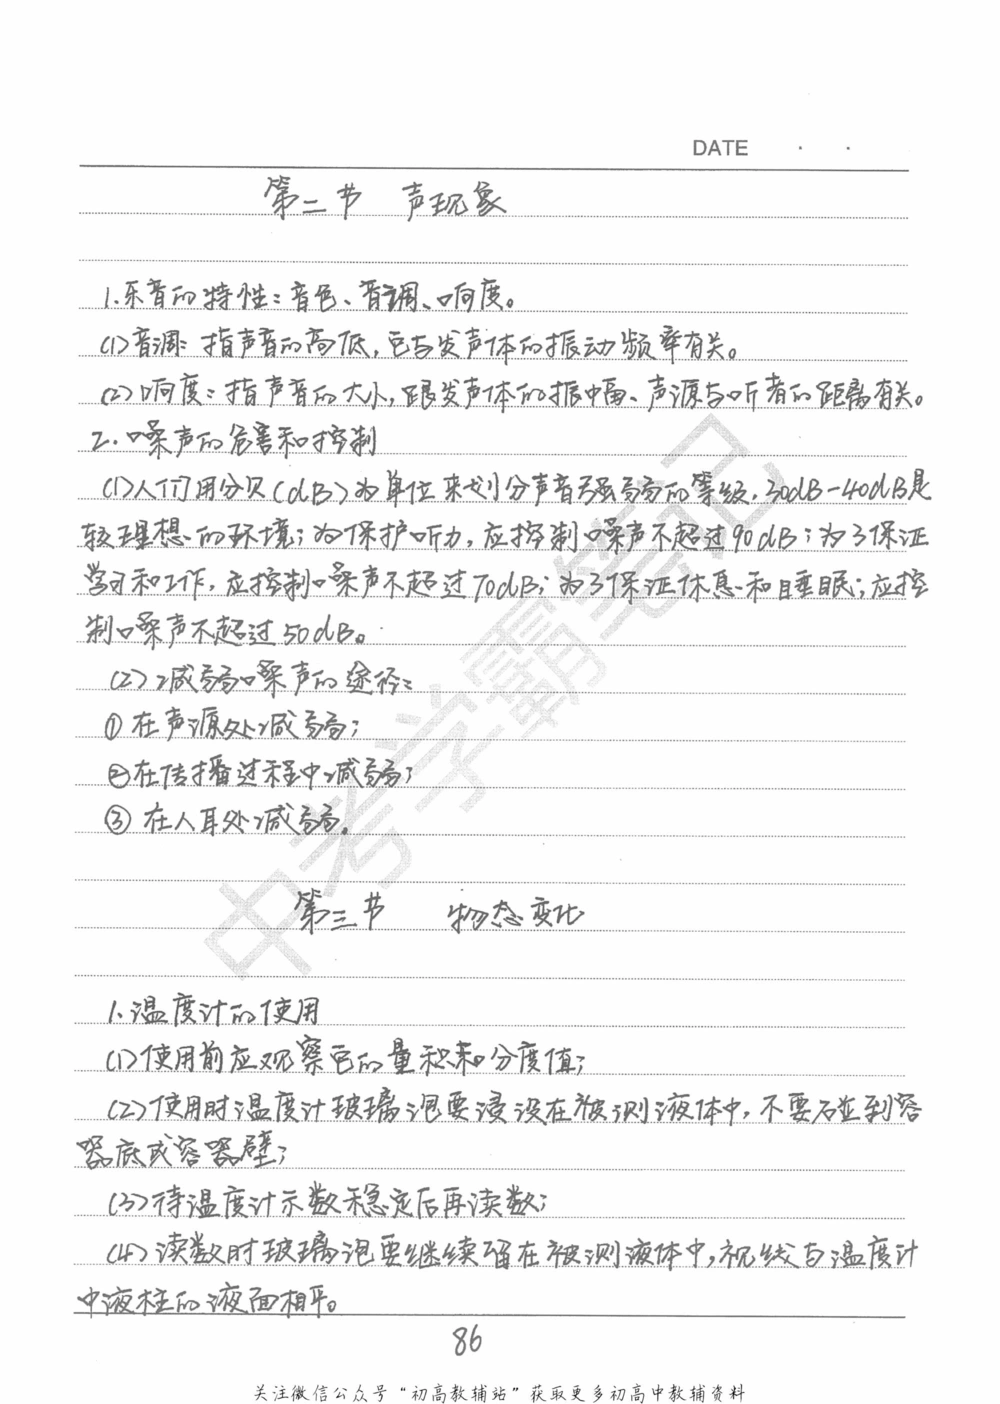 DATE · ·
第二节 声现象
1.乐音的特性：音色、音调、响度。
(1)音调：指声音的高低，它与发声体的振动频率有关。
(2)响度：指声音的大小，跟发声体的振幅、声源与听者的距离有关。
2.噪声的危害和控制
(1)人们用分贝(dB)为单位来划分声音强弱的等级，30dB-40dB是
较理想的环境；为保护听力，应控制噪声不超过90dB；为了保证
学习和工作，应控制噪声不超过70dB；为了保证休息和睡眠；应控
制噪声不超过50dB。
(2)减弱噪声的途径：
①在声源处减弱；
②在传播过程中减弱；
③在人耳处减弱。
第三节 物态变化
1.温度计的使用
(1)使用前应观察它的量积和分度值；
(2)使用时温度计玻璃泡要浸没在被测液体中，不要碰到容
器底或容器壁；
(3)待温度计示数稳定后再读数；
(4)读数时玻璃泡要继续留在被测液体中，视线与温度计
中液柱的液面相平。
86
关注微信公众号“初高教辅站”获取更多初高中教辅资料
中考学霸笔记